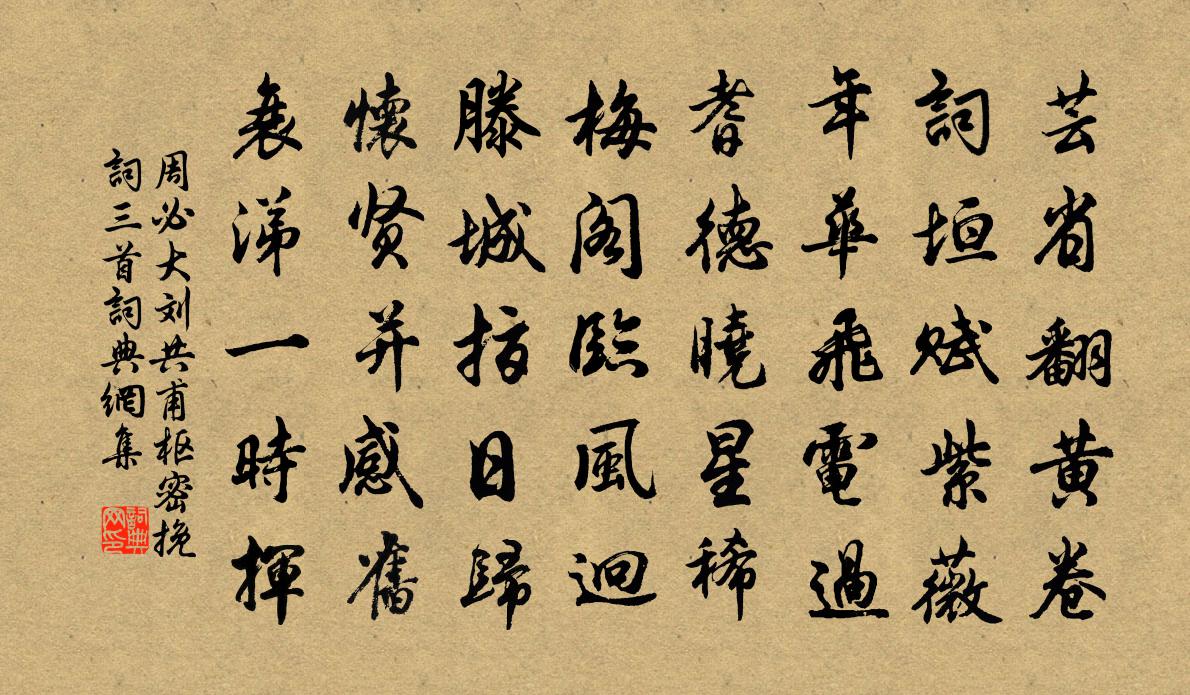 芸省翻黄卷
詞垣赋紫薇
年華飛電過
耆德曉星稀
梅阁臨風迴
滕城指日歸
懷贤并感舊
衰涕一時揮
周必大刘共甫枢密挽
詞三首詞典網集
詞典
网印